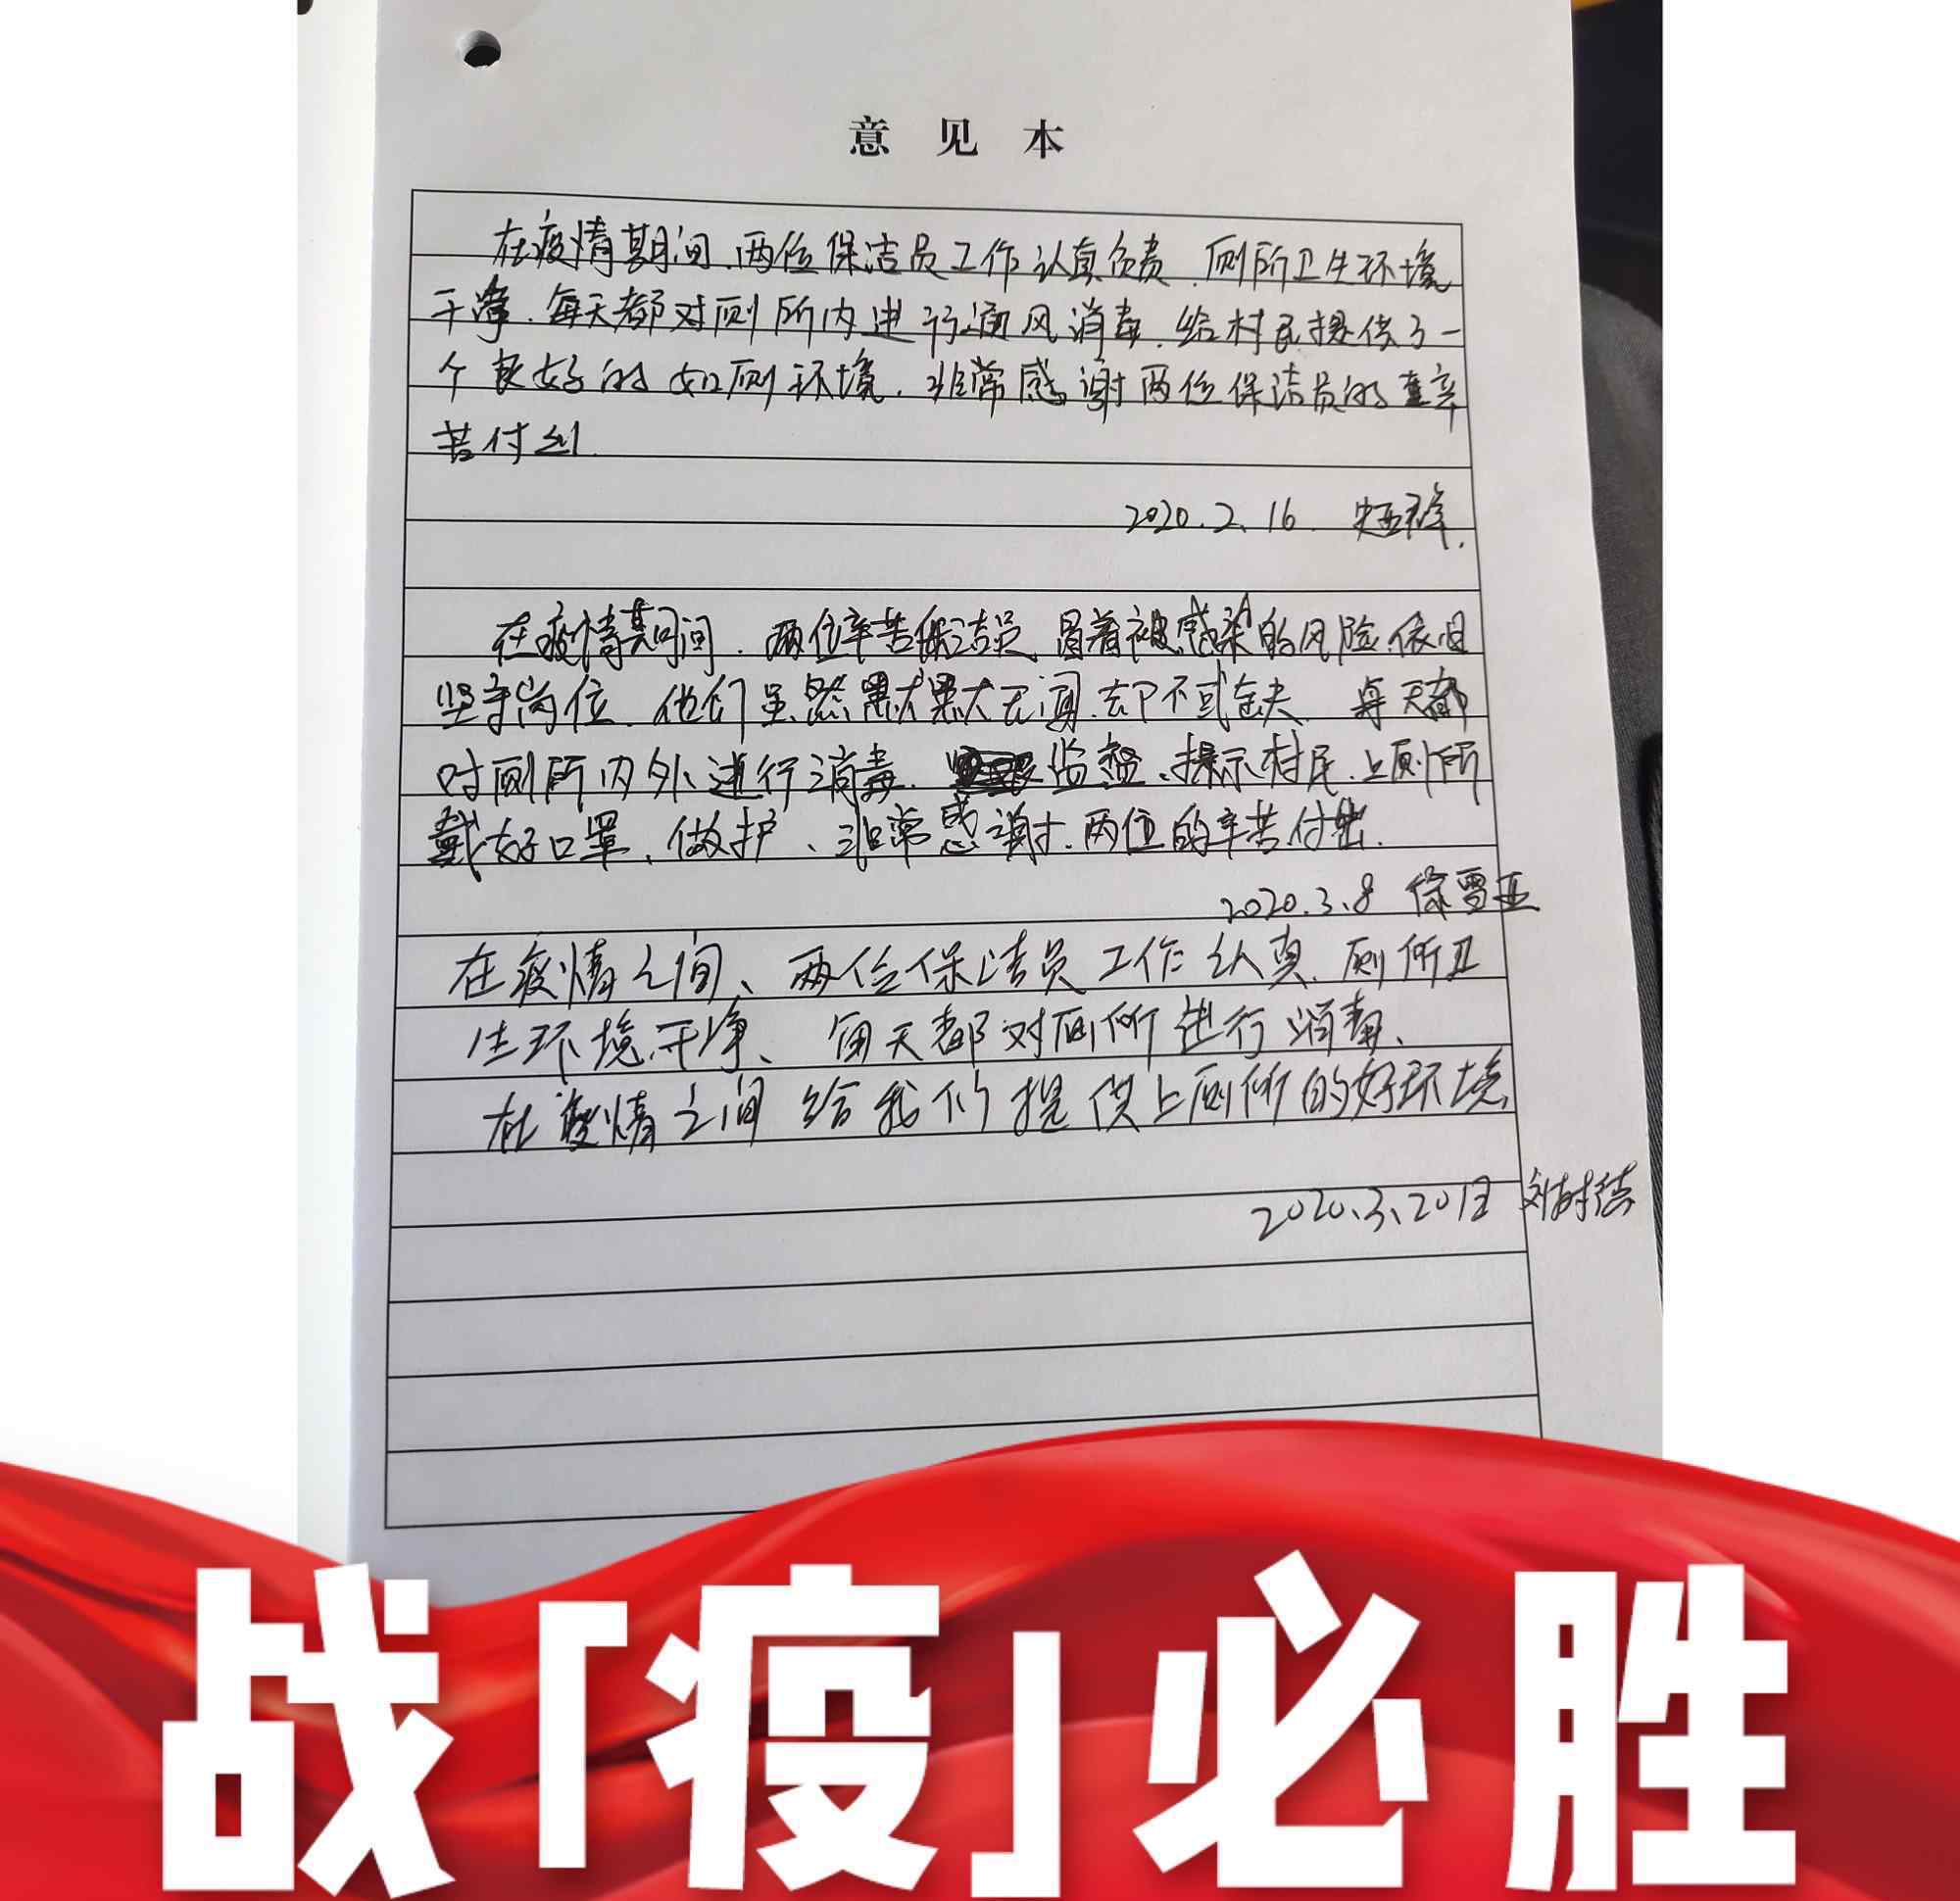 意见本
在疫情期间、两位保洁员工作认真负责、厕所卫生环境
干净、每天都对厕所内进行通风消毒、给村民提供了一
个良好的如厕环境、非常感谢两位保洁员的辛
苦付出
2020.2.16
在疫情期间、两位辛苦保洁员、冒着被感染的风险、依旧
坚守岗位、他们虽然默默无闻、却不可或缺、每天都
对厕所内外进行消毒、监督、提示村民、上厕所
戴好口罩、做护、非常感谢、两位的辛苦付出.
2020.3.8 徐雪亚
在疫情之间、两位保洁员工作认真、厕所卫
生环境干净、每天都对厕所进行消毒、
在疫情之间给我们提供上厕所的好环境
2020.3.20日
战「疫」必胜